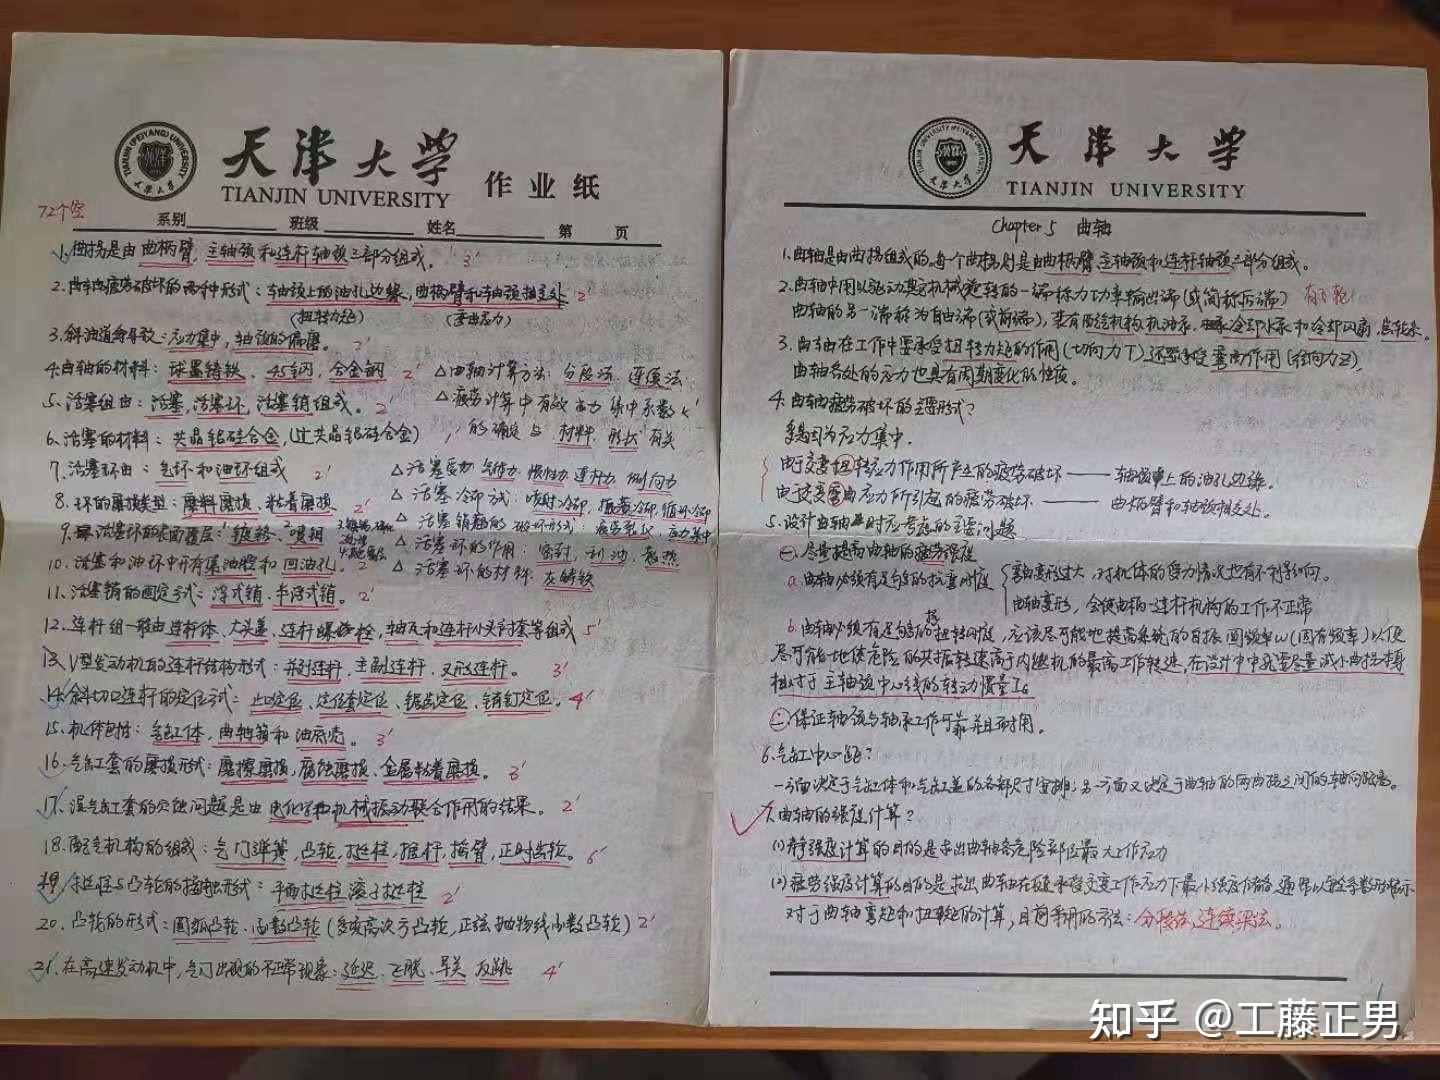 天津大学
TIANJIN UNIVERSITY
作业纸
TIANJIN (PEIYANG) UNIVERSITY
天津大学
72个空
系别 班级 姓名 第 页
1.曲拐是由曲柄臂,主轴颈和连杆轴颈三部分组成。3'
2.曲轴疲劳破坏的两种形式:轴颈上的油孔边缘,曲柄臂和轴颈相交处 2'
(扭转力矩) (弯曲应力)
3.斜油道会导致:应力集中,轴颈的偏磨。2'
4.曲轴的材料:球墨铸铁、45钢,合金钢 2'
5、活塞组由:活塞,活塞环、活塞销组成。2'
6、活塞的材料:共晶铝硅合金,(过共晶铝硅合金) 1'
7、活塞环由:气环和油环组成 2'
8.环的磨损类型:磨料磨损、粘着磨损 2'
9.活塞环的表面覆层:1镀铬、2喷钼
10.活塞和油环中开有集油腔和回油孔。2'
11、活塞销的固定方式:浮式销、半浮式销。2'
△曲轴计算方法:分段法、连续法
△疲劳计算中有效应力集中系数K'
的确定与材料、形状有关
△活塞受力:气体力、惯性力、连杆力、侧向力
△活塞冷却方式:喷射冷却、振荡冷却、循环冷却
△活塞销的破坏形式:疲劳裂纹,应力集中
△活塞环的作用:密封,刮油,散热
△活塞环的材料:灰铸铁
12.连杆组一般由连杆体、大头盖、连杆螺栓、轴瓦和连杆小头衬套等组成 5'
13、V型发动机的连杆结构形式:并列连杆、主副连杆、叉形连杆。3'
14.斜切口连杆的定位方式:止口定位、定位套定位、锯齿定位、销钉定位。4'
15.机体包括:气缸体,曲轴箱和油底壳。3'
16.气缸套的磨损形式:磨擦磨损,腐蚀磨损、金属粘着磨损。3'
17.湿气缸套的穴蚀问题是由电化学和机械振动联合作用的结果。2'
18.配气机构的组成:气门弹簧,凸轮,挺柱,推杆,摇臂,正时齿轮。6'
19.挺柱与凸轮的接触形式:平面挺柱 滚子挺柱 2'
20.凸轮的形式:圆弧凸轮、函数凸轮(多项高次方凸轮,正弦抛物线函数凸轮) 2'
21.在高速发动机中,气门出现的不正常现象:延迟、飞脱、早关 反跳 4'
天津大学
TIANJIN UNIVERSITY
TIANJIN (PEIYANG) UNIVERSITY
天津大学
Chapter 5 曲轴
1.曲轴是由曲拐组成的,每个曲拐则是由曲柄臂主轴颈和连杆轴颈三部分组成。
2.曲轴中用以驱动其它机械旋转的一端称为功率输出端(或简称后端) 有飞轮
曲轴的另一端称为自由端(或前端),装有配给机构,机油泵,冷却水泵和冷却风扇,齿轮系。
3.曲轴在工作中要承受扭转力矩的作用(切向力T)还要承受弯曲作用(径向力Z),
曲轴各处的应力也具有周期变化的性质。
4.曲轴疲劳破坏的主要形式?
多是因为应力集中.
由于交变扭转应力作用所产生的疲劳破坏——轴颈上的油孔边缘。
由于交变弯曲应力所引起的疲劳破坏——曲柄臂和轴颈相交处。
5.设计曲轴时应考虑的主要问题
㊀尽量提高曲轴的疲劳强度
a.曲轴必须有足够的抗弯刚度
弯曲变形过大,对机体的受力情况也有不利影响。
曲轴变形,会使曲柄-连杆机构的工作不正常
b.曲轴必须有足够的抗扭转刚度,应该尽可能地提高系统的自振圆频率ω(固有频率)以便
尽可能地使危险的共振转速高于内燃机的最高工作转速,在设计中就要尽量减小曲拐本身
相对于主轴颈中心线的转动惯量I。
㊁保证轴颈与轴承工作可靠并且耐用。
6.气缸中心距?
一方面决定于气缸体和气缸盖的各部尺寸安排;另一方面又决定于曲轴的两曲拐之间的轴向距离。
7.曲轴的强度计算?
(1)静强度计算的目的是求出曲轴各危险部位最大工作应力
(2)疲劳强度计算的目的是求出曲轴在承受交变工作应力下最小强度储备 通常以安全系数形式表示
对于曲轴弯矩和扭矩的计算,目前采用的方法:分段法,连续梁法。
知乎 @工藤正男